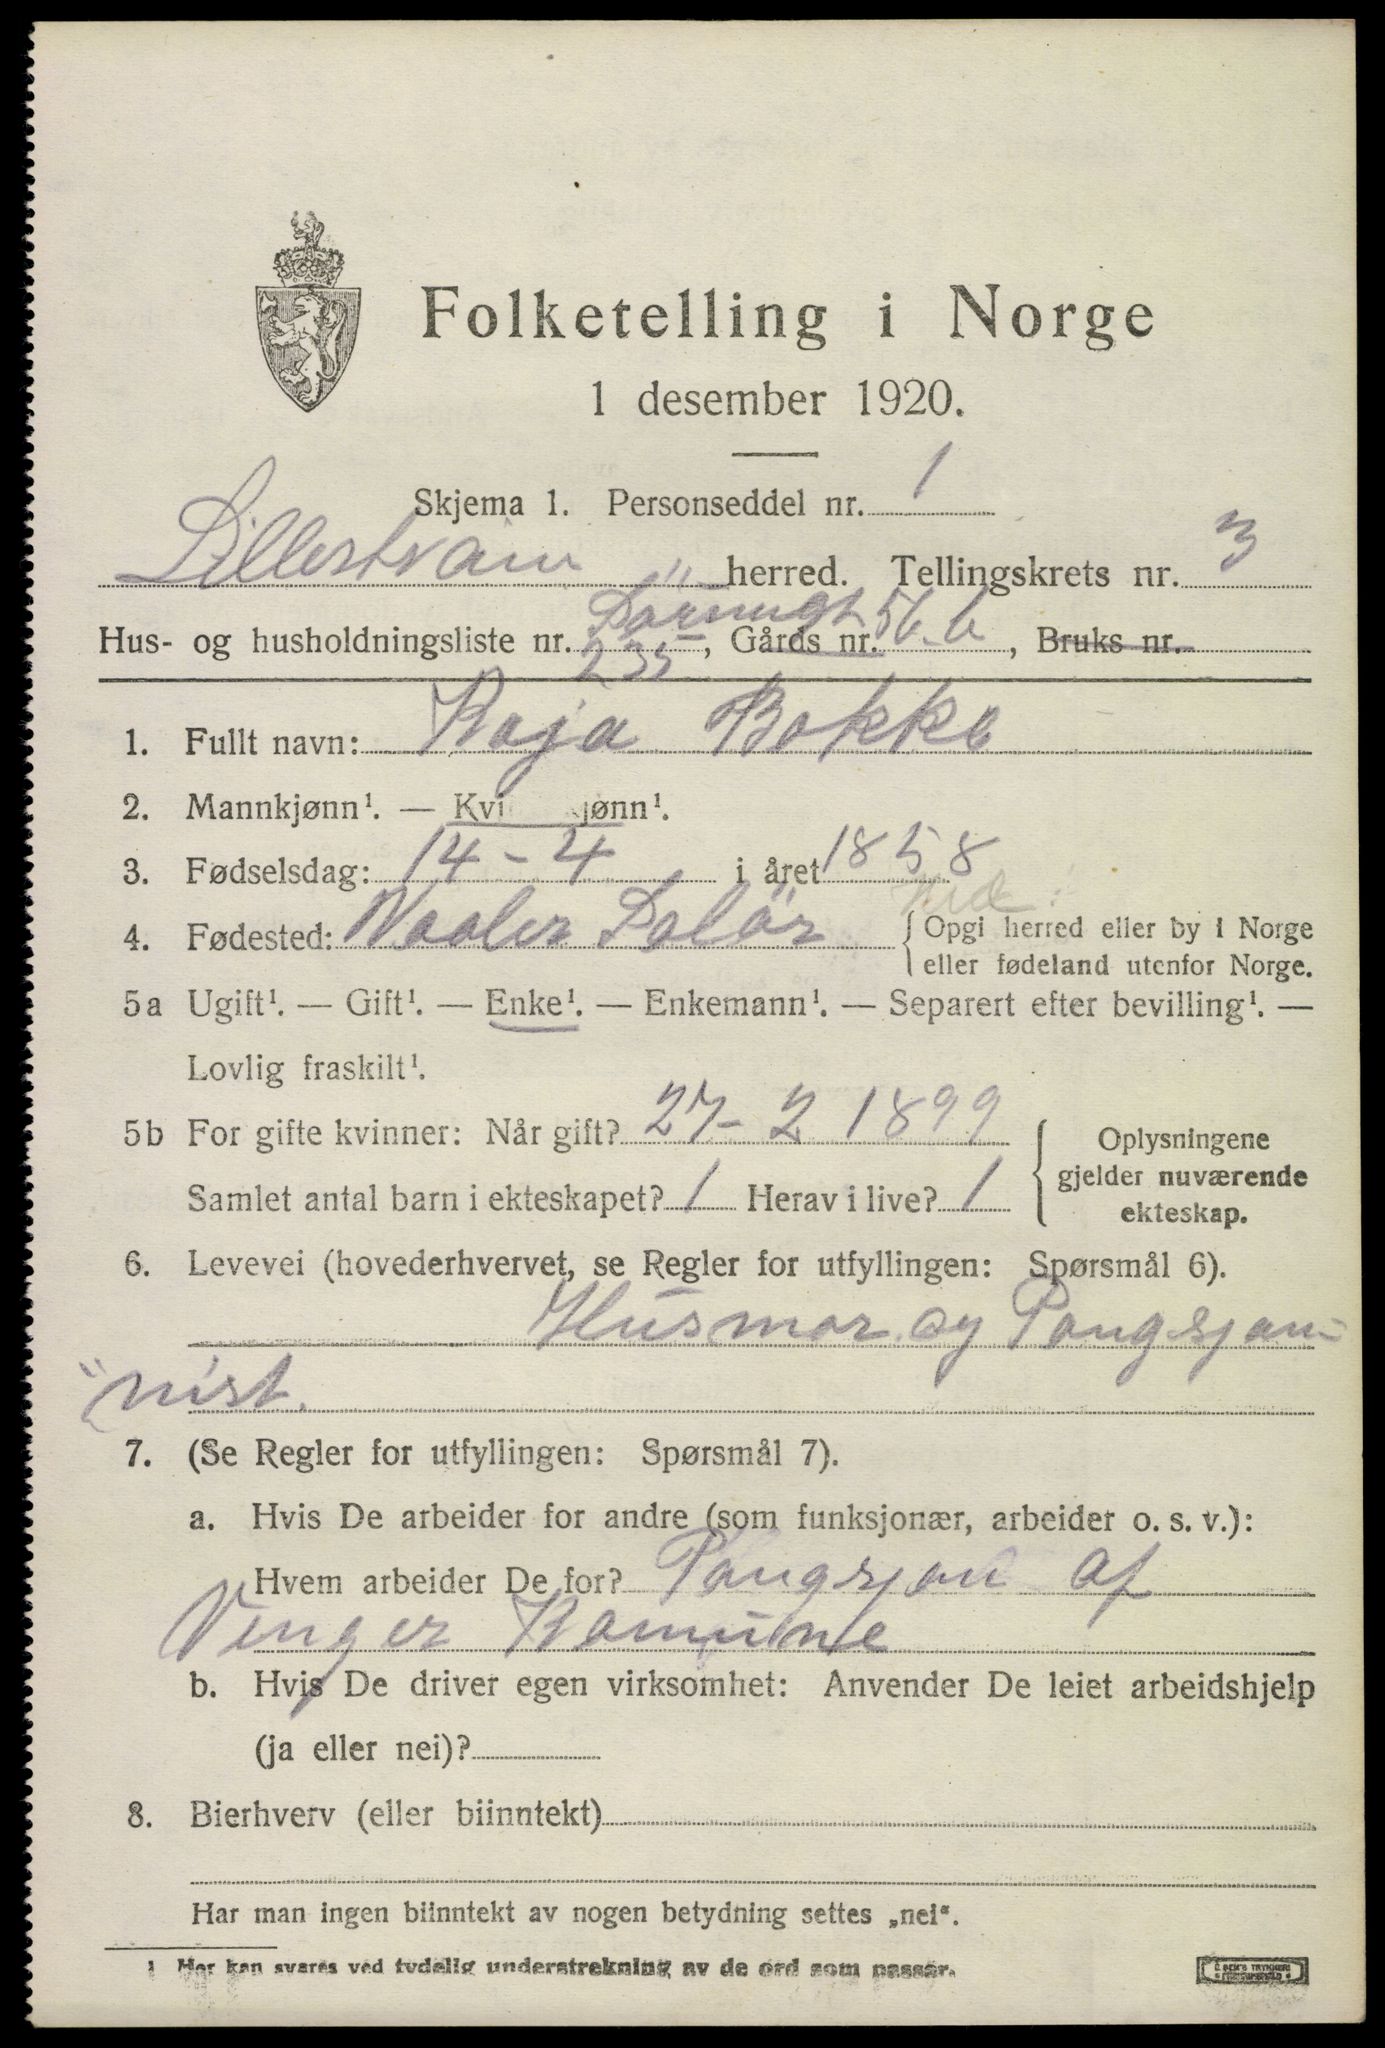 Folketelling i Norge
1 desember 1920.
Skjema 1. Personseddel nr. 1
Lillestrøm herred. Tellingskrets nr. 3
Hus- og husholdningsliste nr. 235, Gårds nr. 56 b, Bruks nr.
1. Fullt navn: Kaja Bakke
2. Mannkjønn¹. — Kvi jønn¹.
3. Fødselsdag: 14-4 i året 1858
4. Fødested: Vaaler Solör { Opgi herred eller by i Norge
eller fødeland utenfor Norge.
5a Ugift¹. — Gift¹. — Enke¹. — Enkemann¹. — Separert efter bevilling¹. —
Lovlig fraskilt¹.
5b For gifte kvinner: Når gift? 27-2 1899
Samlet antal barn i ekteskapet? 1 Herav i live? 1
Oplysningene
gjelder nuværende
ekteskap.
6. Levevei (hovederhvervet, se Regler for utfyllingen: Spørsmål 6).
Husmor og Pangsjon-
"nist.
7. (Se Regler for utfyllingen: Spørsmål 7).
a. Hvis De arbeider for andre (som funksjonær, arbeider o. s. v.):
Hvem arbeider De for? Pangsjon af
Vinger Komune
b. Hvis De driver egen virksomhet: Anvender De leiet arbeidshjelp
(ja eller nei)?
8. Bierhverv (eller biinntekt)
Har man ingen biinntekt av nogen betydning settes „nei“.
1 Her kan svares ved tydelig understrekning av de ord som passer.